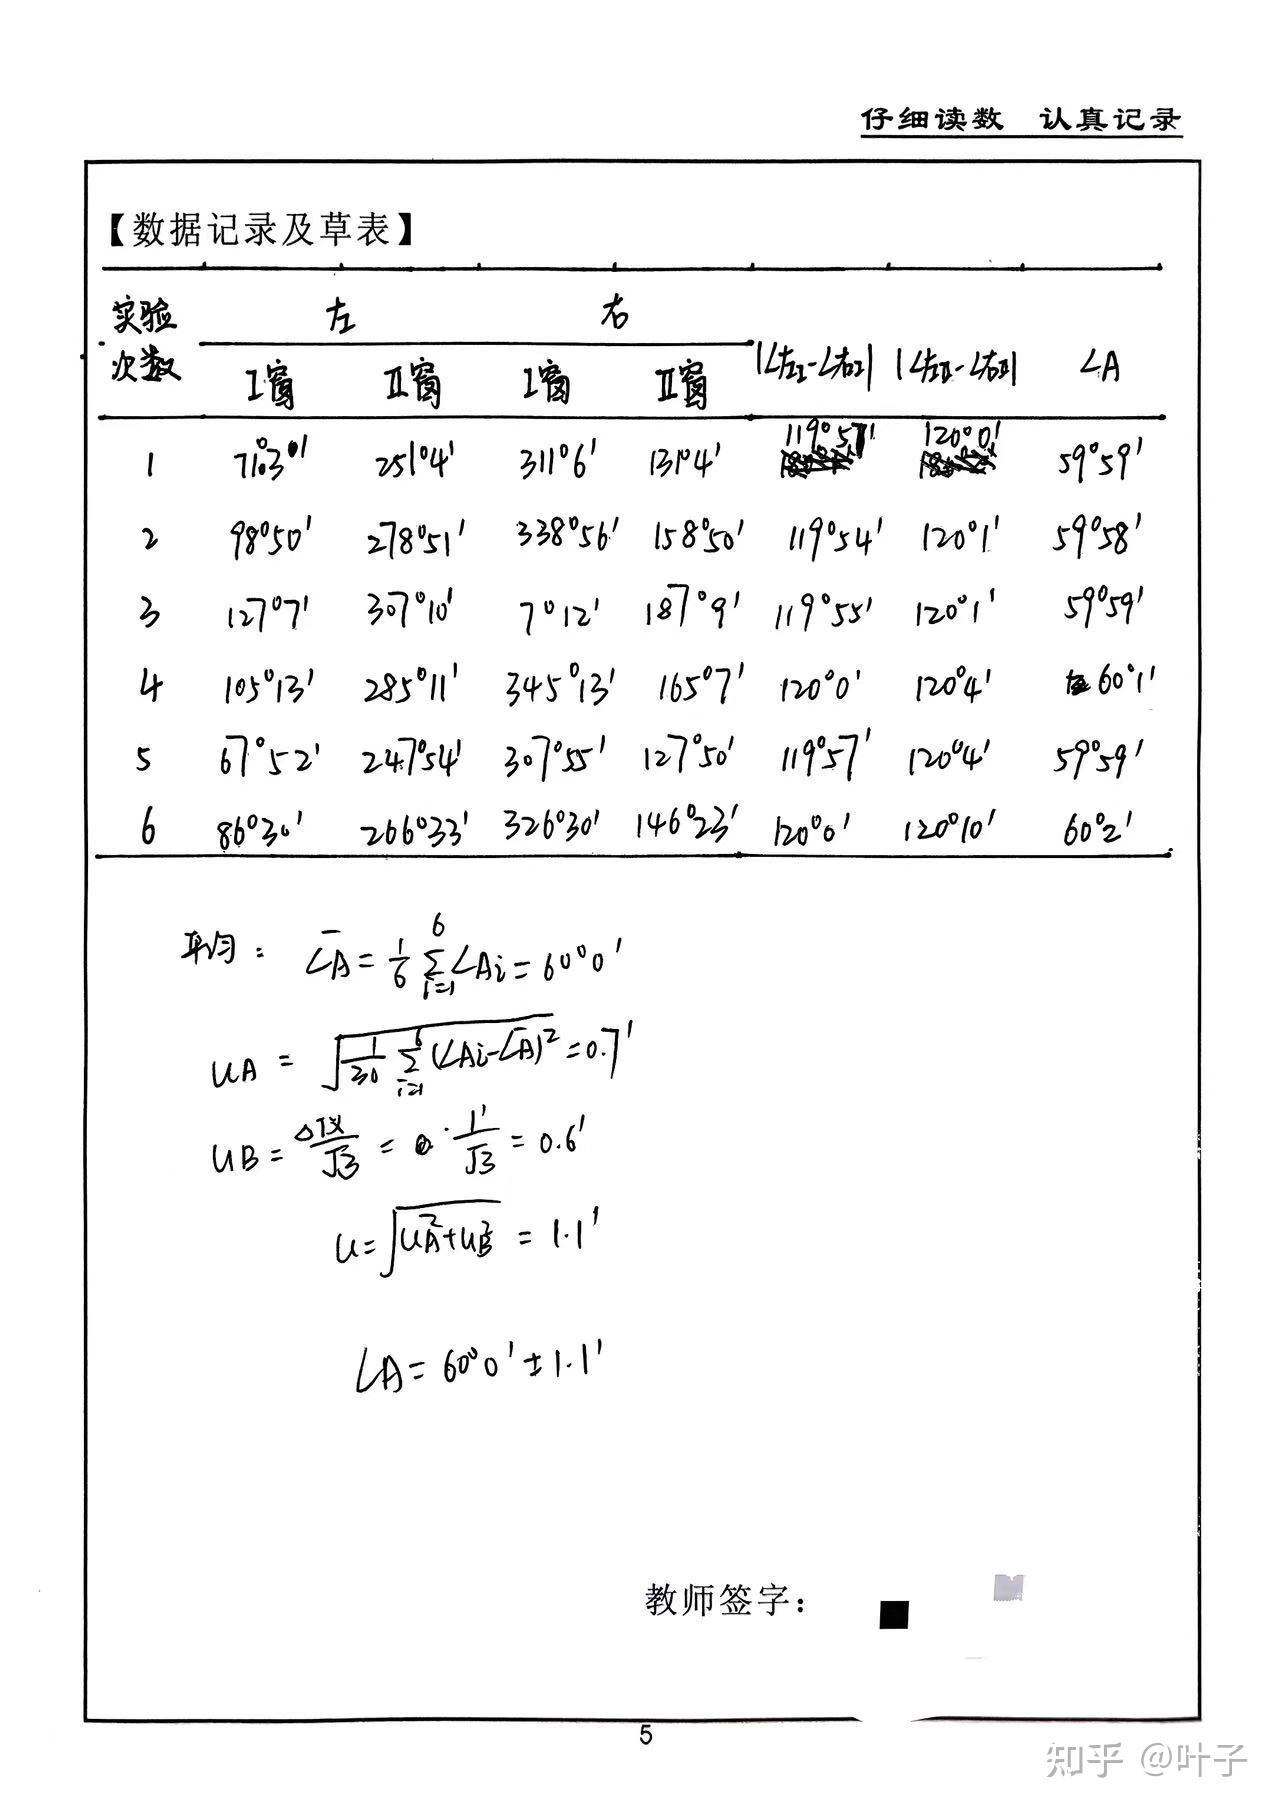 仔细读数 认真记录
【数据记录及草表】
实验次数 左 右 |∠左I-∠右I| |∠左II-∠右II| ∠A
I窗 II窗 I窗 II窗
1 71°3' 251°4' 311°6' 131°4' 119°57' 120°0' 59°59'
2 98°50' 278°51' 338°56' 158°50' 119°54' 120°1' 59°58'
3 127°7' 307°10' 7°12' 187°9' 119°55' 120°1' 59°59'
4 105°13' 285°11' 345°13' 165°7' 120°0' 120°4' 60°1'
5 67°52' 247°54' 307°55' 127°50' 119°57' 120°4' 59°59'
6 86°30' 266°33' 326°30' 146°23' 120°0' 120°10' 60°2'
平均: ∠A̅ = 1/6 Σ_{i=1}^{6} ∠Ai = 60°0'
uA = √(1/30 Σ_{i=1}^{6} (∠Ai-∠A̅)²) = 0.7'
uB = Δ仪/√3 = 1'/√3 = 0.6'
u = √(uA²+uB²) = 1.1'
∠A = 60°0' ± 1.1'
教师签字:
5
知乎 @叶子